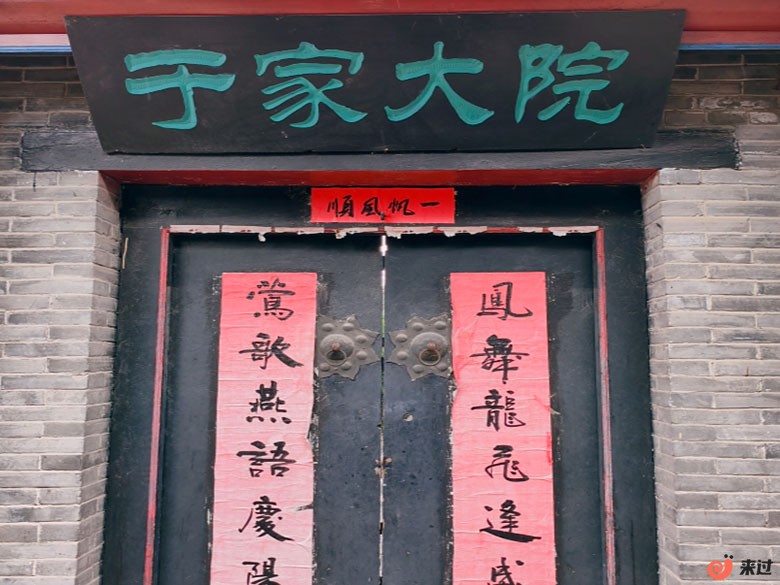 于家大院
一帆風順
鳳舞龍飛逢盛
鶯歌燕語慶陽
来过